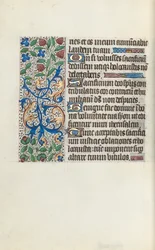 nes et os meum annunciabit
laudem tuam
Qm si voluisses sacrificiu
dedissem utiqz holocaustis no
delectaberis
Sacrificium deo spus con
tribulatus cor contritu et hu
miliatu deus non despicies
Benigne fac domine i bo
na voluntate tua syon ut edi
ficentur muri iherusalem
Tunc acceptabis sacrifici
um iusticie oblationes et ho
locausta tunc imponent super
altare tuum vitulos